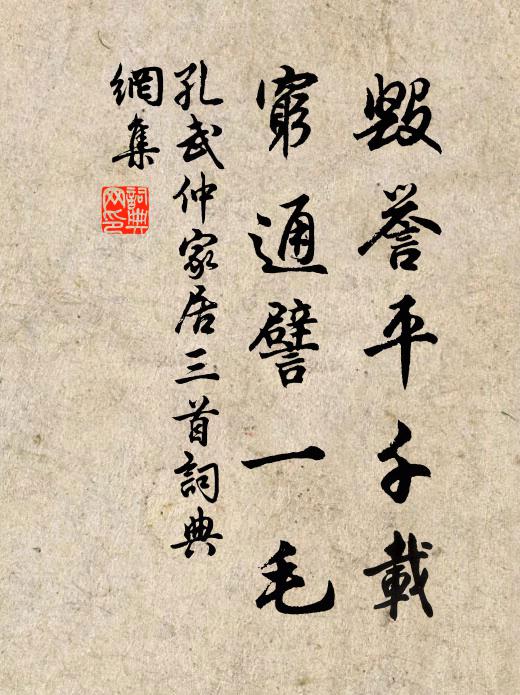 毀誉平千載
窮通譬一毛
孔武仲家居三首詞典
網集
詞典
网印